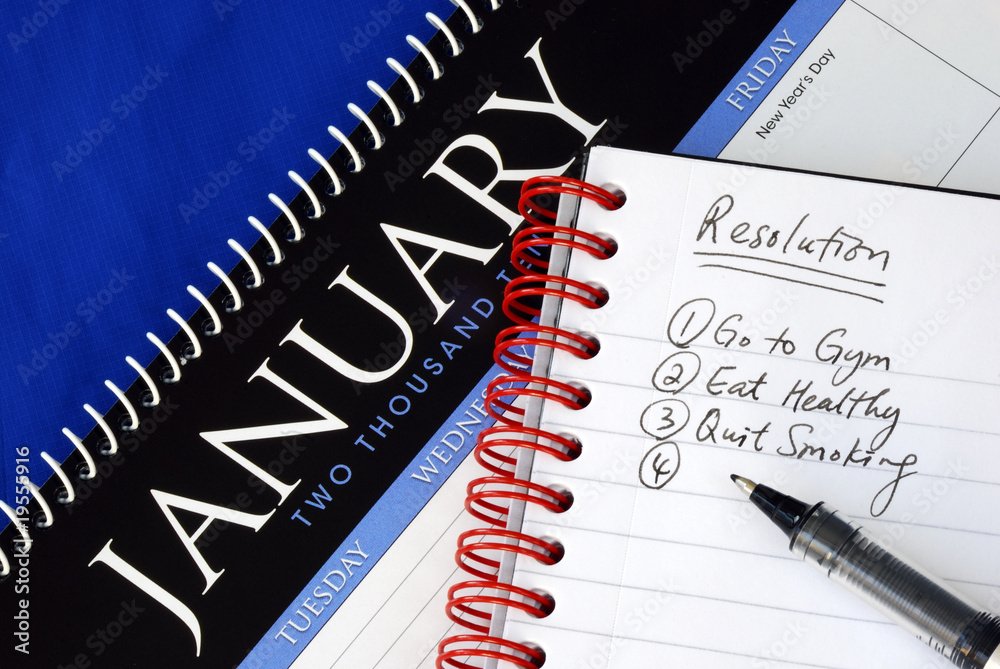 JANUARY
TWO THOUSAND TEN
TUESDAY
WEDNESDAY
FRIDAY
New Year's Day
Resolution
① Go to Gym
② Eat Healthy
③ Quit Smoking
④
Adobe Stock | #19555916